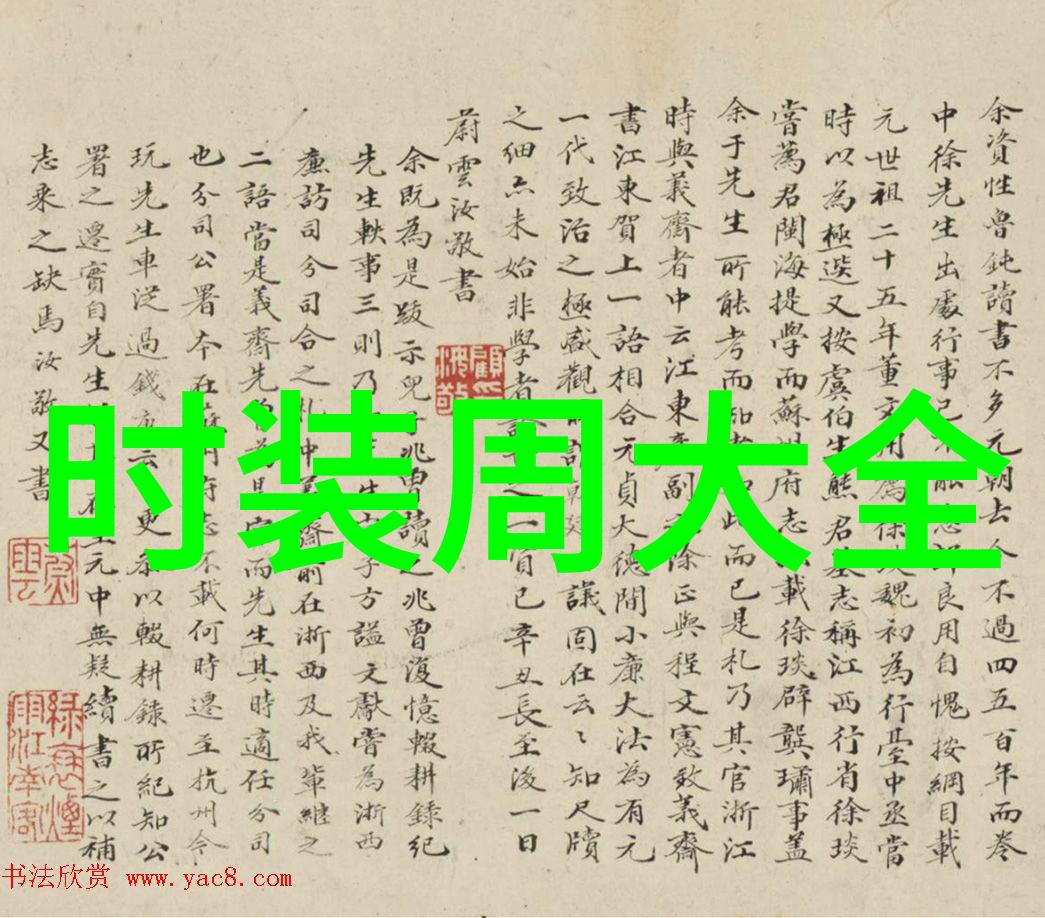 余資性魯鈍讀書不多元朝去今不過四五百年而卷
中徐先生出處行事已不能悉即良用自愧按綱目載
元世祖二十五年董文用薦徐琰魏初為行臺中丞當
時以為極選又按虞伯生熊君墓志稱江西行省徐琰
嘗薦君閩海提學而蘇州府志載徐琰辟龔璛事蓋
余于先生所能考而知者如此而已是札乃其官浙江
時與義齋者中云江東副除正與程文憲效義齋
書江東賀上一語相合元貞大德間小廉大法為有元
一代致治之極盛觀討議固在云々知尺牘
之細亦未始非學者之一已辛丑長至後一日
蔚雲汝敬書
余既為是跋示兒子兆曾讀之兆曾復憶輟耕錄紀
先生軼事三則乃生子方謚文獻嘗為浙西
廉訪司分司合之札中齋前在浙西及我輩繼之
二語當是義齋先為是官而先生其時適任分司
也分司公署今在府志不載何時遷至杭州今
玩先生車從過錢唐云更參以輟耕錄所紀知公
署之遷實自先生至元中無疑續書之以補
志乘之缺馬汝敬又書
时装周大全
书法欣赏 www.yac8.com